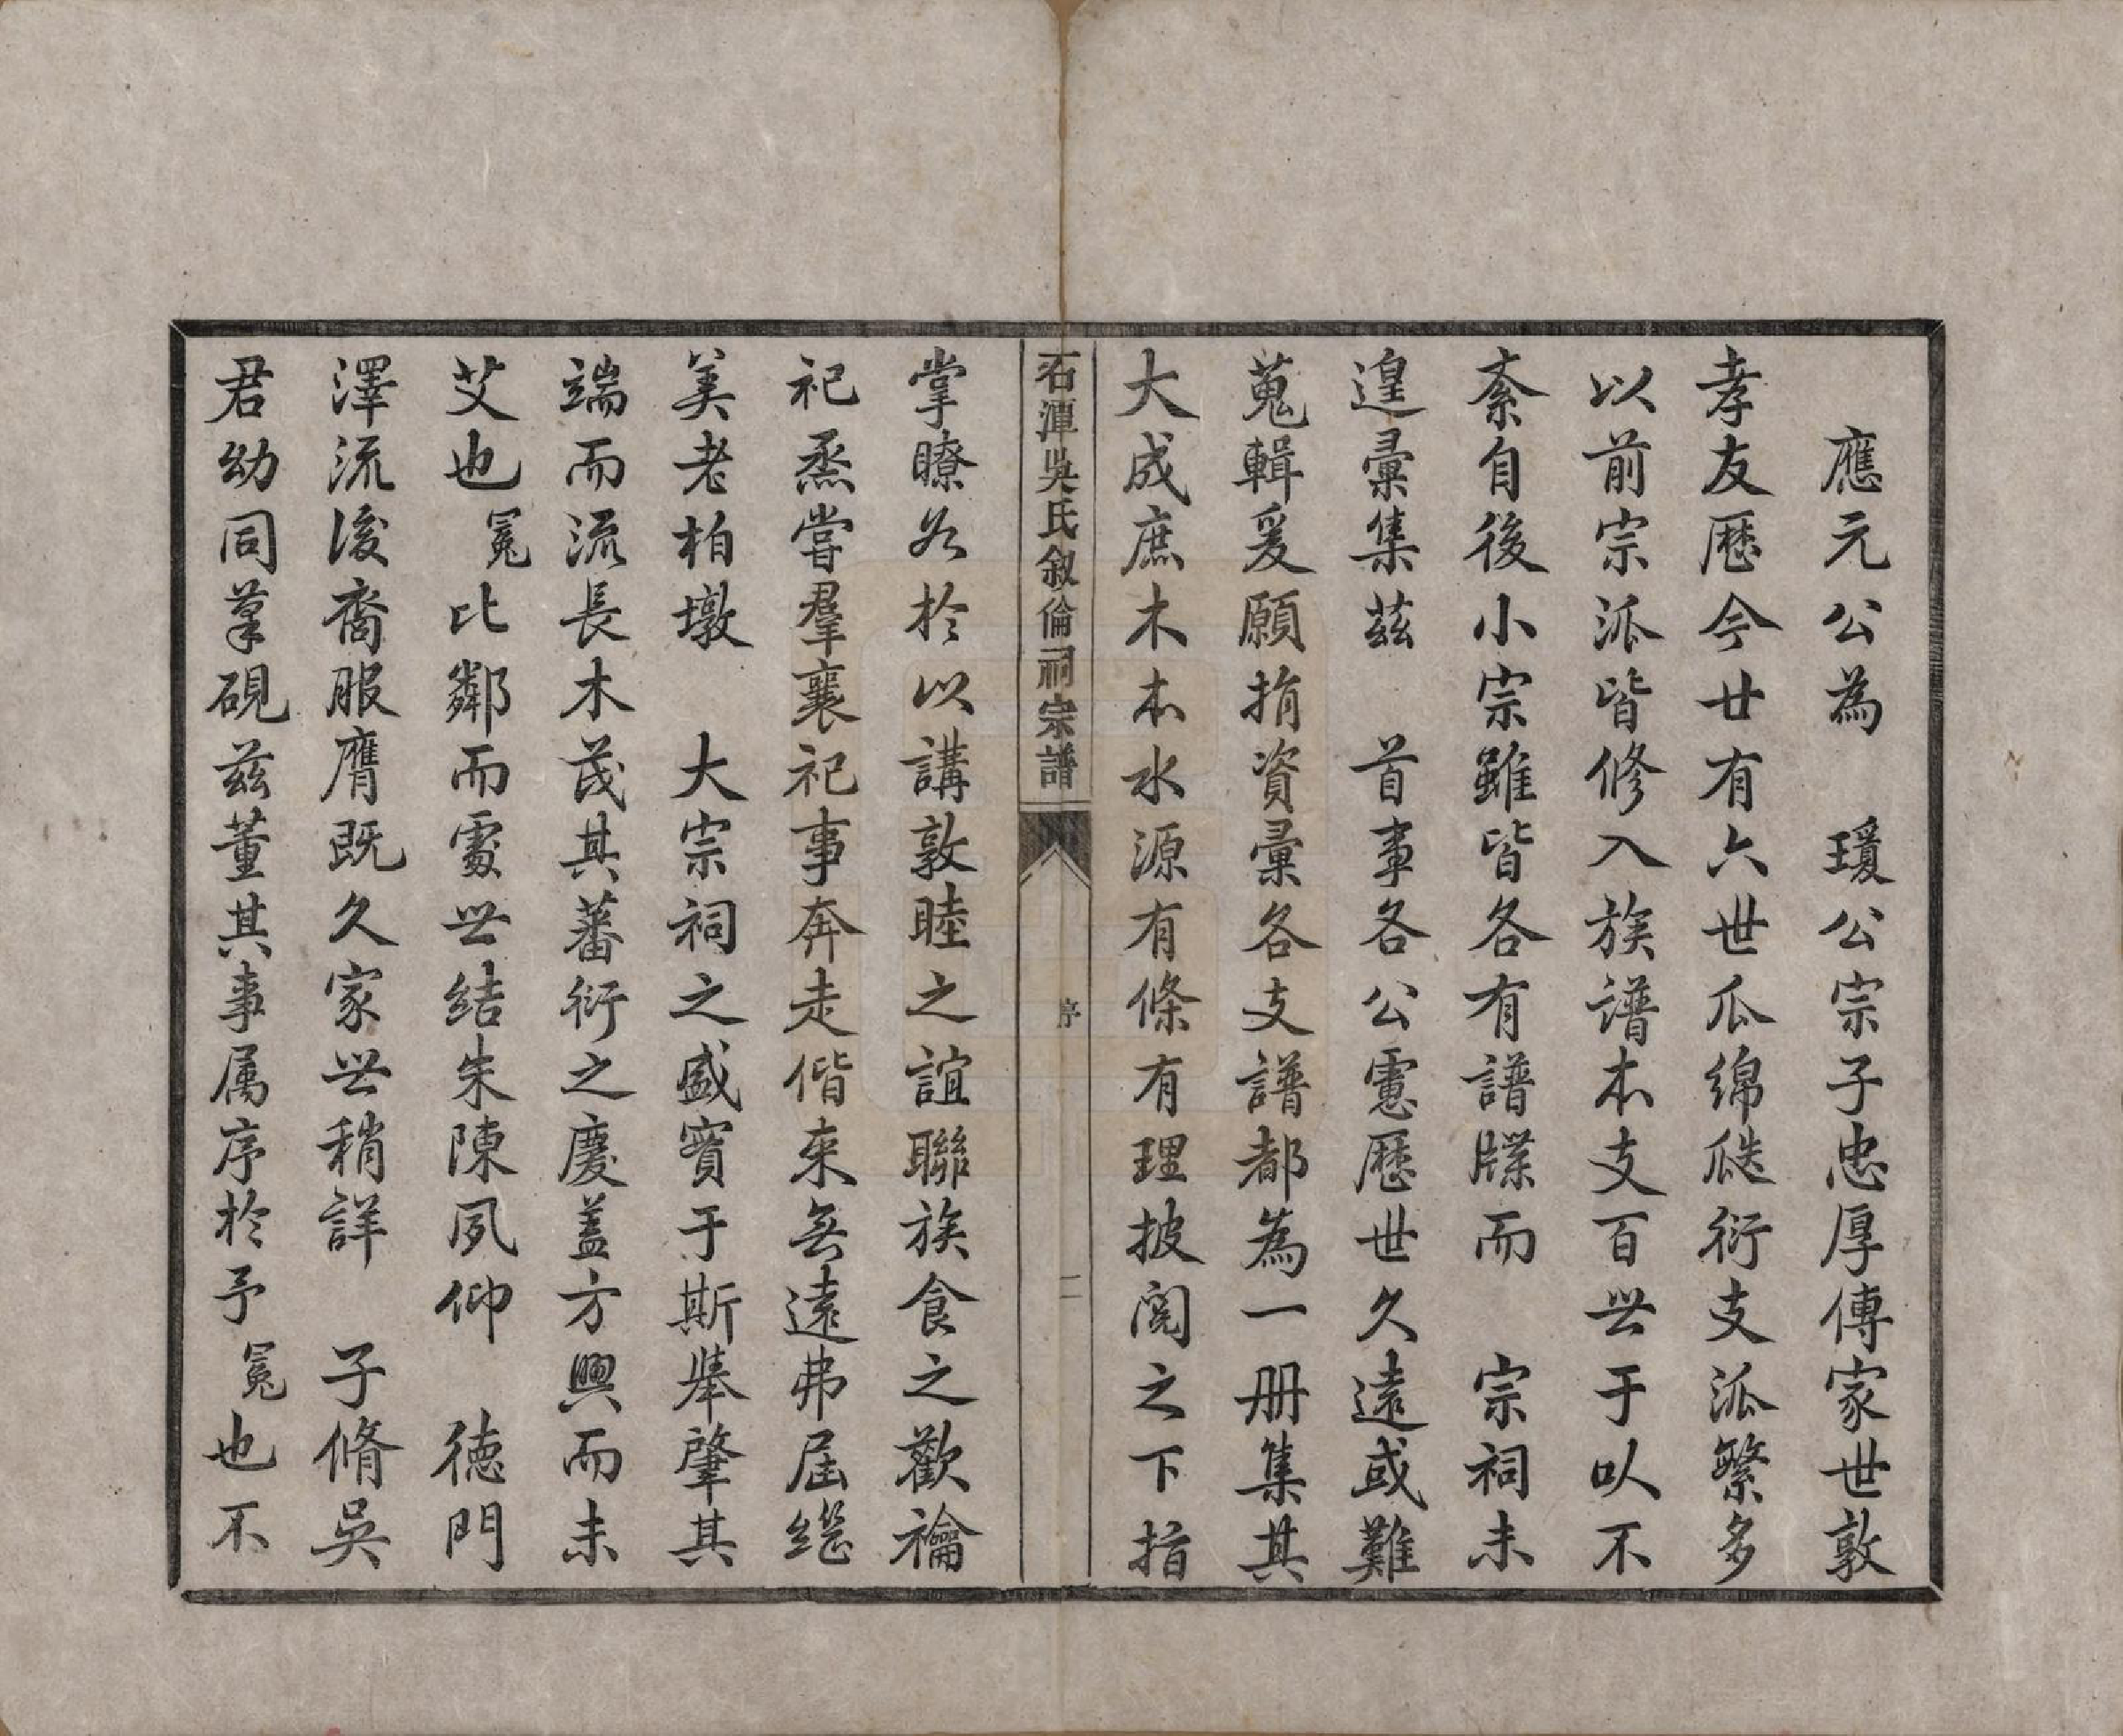 應元公為 瓊公宗子忠厚傳家世敦
孝友歷今廿有六世瓜綿瓞衍支派繁多
以前宗派皆修入族譜本支百世于以不
紊自後小宗雖皆各有譜牒而 宗祠未
遑彙集茲 首事各公慮歷世久遠或難
蒐輯爰願捐資彙各支譜都為一册集其
大成庶木本水源有條有理披閱之下指
石潭吳氏叙倫祠宗譜
序
二
掌瞭如於以講敦睦之誼聯族食之歡禴
祀烝嘗羣襄祀事奔走偕来無遠弗屆繼
美老柏墩 大宗祠之盛實于斯舉肇其
端而流長木茂其蕃衍之慶蓋方興而未
艾也冕比鄰而處世結朱陳夙仰 德門
澤流後裔服膺既久家世稍詳 子脩吳
君幼同筆硯茲董其事属序於予冕也不